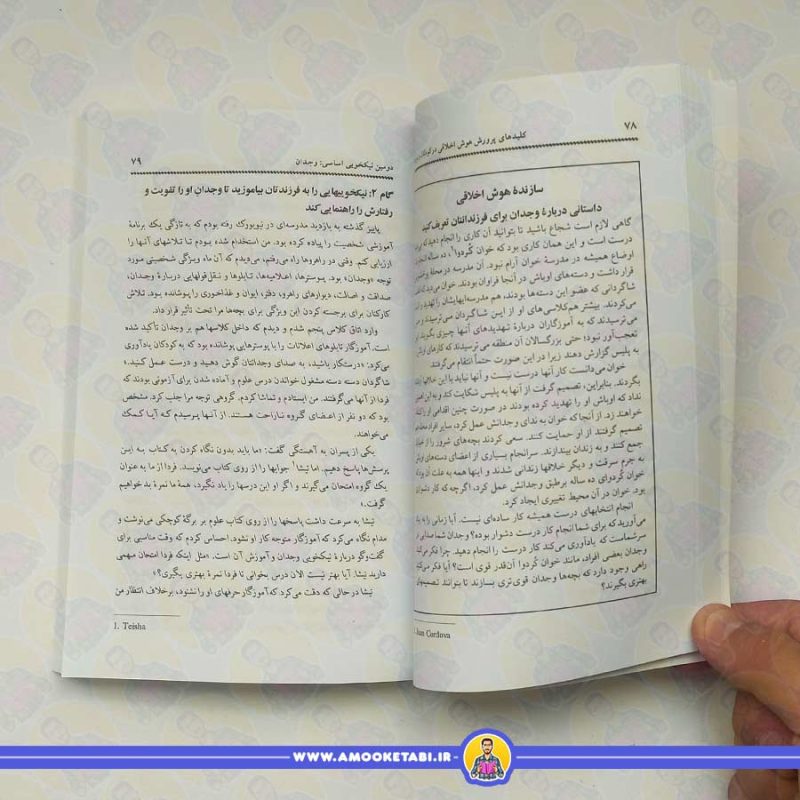 ۷۸
کلیدهای پرورش هوش اخلاقی در کودکان
سازندهٔ هوش اخلاقی
داستانی دربارهٔ وجدان برای فرزندانتان تعریف کنید
گاهی لازم است شجاع باشید تا بتوانید آن کاری را انجام دهید که
درست است و این همان کاری بود که خوان کُردوا
اوضاع همیشه در مدرسهٔ خوان آرام نبود. آن مدرسه در محلهٔ
قرار داشت و دسته‌های اوباش در آنجا فراوان بودند. خوان می‌دید که
شاگردانی که عضو این دسته‌ها بودند، هم مدرسه‌ایهایشان را تهدید
می‌کردند. بیشتر هم‌کلاسی‌های او از این شاگردان می‌ترسیدند و
می‌ترسیدند که به آموزگاران دربارهٔ تهدیدهای آنها چیزی بگویند.
تعجب‌آور نبود؛ حتی بزرگسالان آن منطقه می‌ترسیدند که کارهای اوباش
به پلیس گزارش دهند زیرا در این صورت حتماً انتقام می‌گرفتند
خوان می‌دانست کار آنها درست نیست و آنها نباید با این خلافها
بگردند. بنابراین، تصمیم گرفت از آنها به پلیس شکایت کند و به این
نداد که اوباش او را تهدید کرده بودند در صورت چنین اقدامی او را
خواهند زد. از آنجا که خوان به ندای وجدانش عمل کرد، سایر افراد محله
تصمیم گرفتند از او حمایت کنند. سعی کردند بچه‌های شرور را از
جمع کنند و به زندان بیندازند. سرانجام بسیاری از اعضای دسته‌های
به جرم سرقت و دیگر خلافها زندانی شدند و اینها همه به علت آن بود که
خوان کُردوای ده ساله برطبق وجدانش عمل کرد، اگرچه که کار دشواری
بود. خوان در آن محیط تغییری ایجاد کرد.
انجام انتخابهای درست همیشه کار ساده‌ای نیست. آیا زمانی را به یاد
می‌آورید که برای شما انجام کار درست دشوار بوده؟ وجدان شما صدایی در
سر شماست که یادآوری می‌کند کار درست را انجام دهید. چرا فکر می‌کنید
وجدان بعضی افراد، مانند خوان کُردوا آن‌قدر قوی است؟ آیا فکر می‌کنید
راهی وجود دارد که بچه‌ها وجدان قوی‌تری بسازند تا بتوانند تصمیمهای
بهتری بگیرند؟
Juan Cordova
دومین نیکخویی اساسی: وجدان
۷۹
گام ۲: نیکخوییهایی را به فرزندتان بیاموزید تا وجدانِ او را تقویت و
رفتارش را راهنمایی کند
پاییز گذشته به بازدید مدرسه‌ای در نیویورک رفته بودم که به تازگی یک برنامهٔ
آموزشی شخصیت را پیاده کرده بود. من استخدام شده بودم تا تلاشهای آنها را
ارزیابی کنم. وقتی در راهروها راه می‌رفتم، می‌دیدم که آن ماه ویژگی شخصیتی مورد
توجه «وجدان» بود. پوسترها، اعلامیه‌ها، تابلوها و نقل‌قولهایی دربارهٔ وجدان،
صداقت و اصالت، دیوارهای راهرو، دفتر، ایوان و غذاخوری را پوشانده بود. تلاش
کارکنان برای برجسته کردن این ویژگی برای بچه‌ها مرا تحت تأثیر قرار داد.
وارد اتاق کلاس پنجم شدم و دیدم که داخل کلاسها هم بر وجدان تأکید شده
است. آموزگار تابلوهای اعلانات را با پوسترهایی پوشانده بود که به کودکان یادآوری
می‌کرد: «درستکار باشید، به صدای وجدانتان گوش دهید و درست عمل کنید.»
شاگردان دسته دسته مشغول خواندن درس علوم و آماده شدن برای آزمونی بودند که
فردا از آنها می‌گرفتند. من ایستادم و تماشا کردم. گروهی توجه مرا جلب کرد. مشخص
بود که دو نفر از اعضای گروه ناراحت هستند. از آنها پرسیدم که آیا کمک
می‌خواهند.
یکی از پسران به آهستگی گفت: «ما باید بدون نگاه کردن به کتاب به این
پرسش‌ها پاسخ دهیم. اما تیشا¹ جوابها را از روی کتاب می‌نویسد. فردا از ما به عنوان
یک گروه امتحان می‌گیرند و اگر او این درسها را یاد نگیرد، همهٔ ما نمرهٔ بد خواهیم
گرفت.»
تیشا به سرعت داشت پاسخها را از روی کتاب علوم بر برگهٔ کوچکی می‌نوشت و
مدام نگاه می‌کرد که آموزگار متوجه کار او نشود. احساس کردم که وقت مناسبی برای
گفت‌وگو دربارهٔ نیکخویی وجدان و آموزش آن است. «مثل اینکه فردا امتحان مهمی
دارید تیشا. آیا بهتر نیست الان درس بخوانی تا فردا نمرهٔ بهتری بگیری؟»
تیشا در حالی که دقت می‌کرد که آموزگار حرفهای او را نشنود، برخلاف انتظار من
1. Teisha
WWW.AMOOKETABI.IR